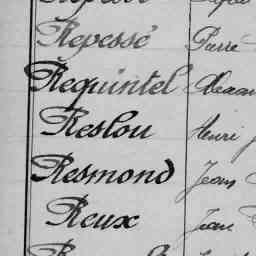 Repessé Pierre
Requintel
Reslou Henri
Resmond Jean
Reux Jean